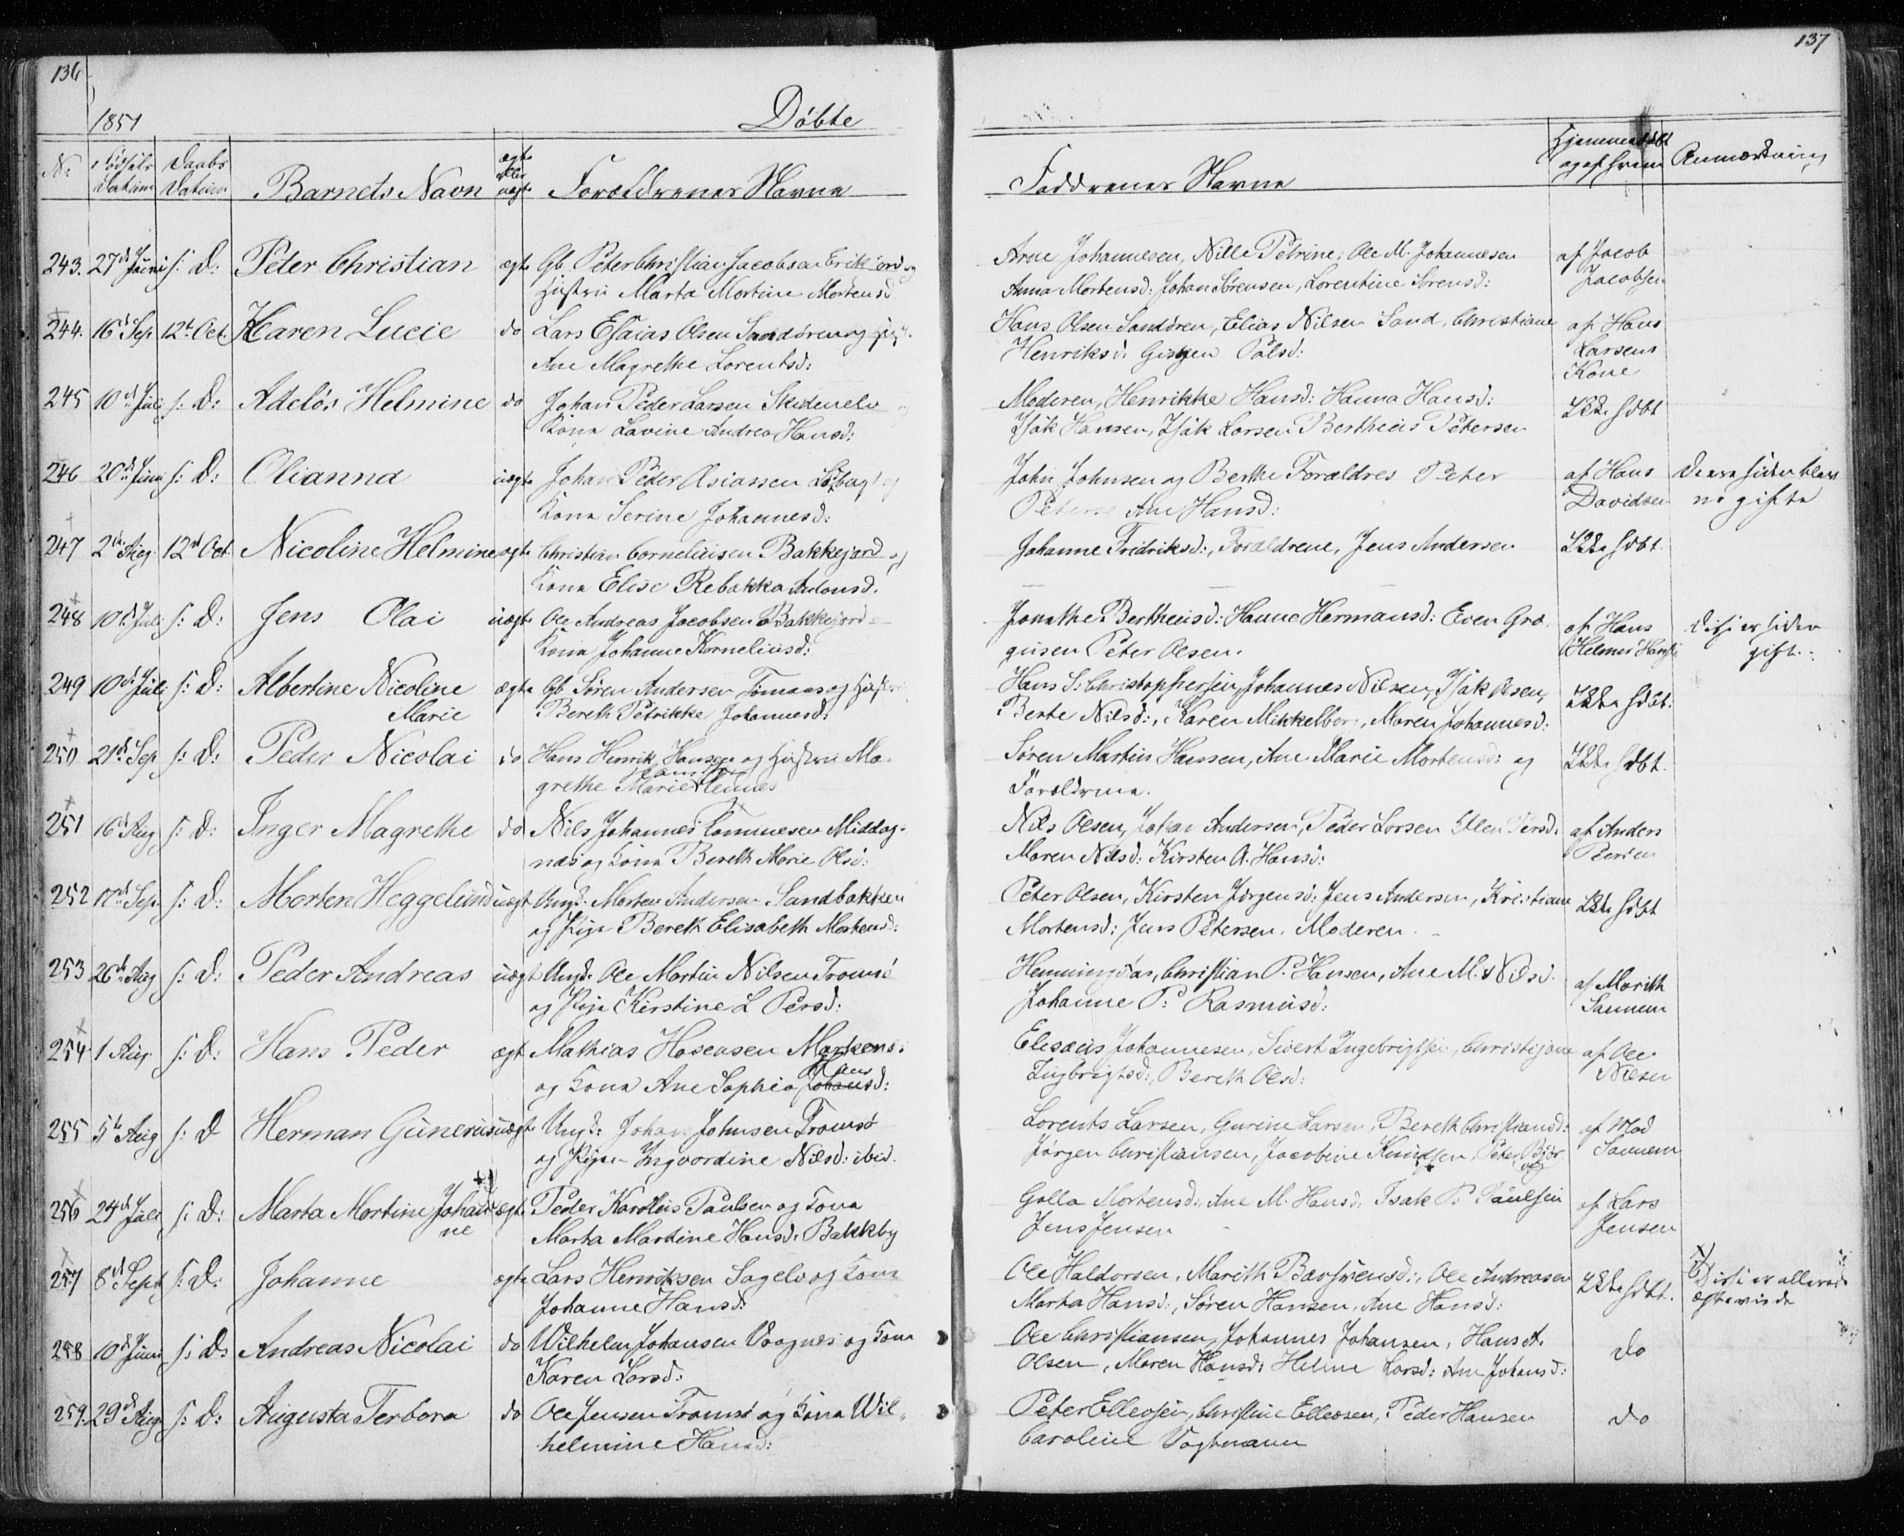 136
137
1851
Döbte
No
Födsels Datum
Daabs Datum
Barnets Navn
ægte eller uægte
Forældrenes Navne
Faddrenes Navne
Hjemmedöbt og af hvem
Anmærkning
243. 27d Juni s: D: Peter Christian ægte Gb. Peter Christian Jacobsen Erikjord og
Hustru Marta Mortine Mortensd
Arne Johannesen, Nille Petrine, Ole M. Johannesen
Anna Mortensd: Johan Sörensen, Lorentine Sörensd:
af Jacob
Jacobsen
244. 16d Sep 12te Oct. Karen Lucie do Lars Esaias Olsen Sandören og
Ane Magrethe Lorentsd:
Hans Olsen Sandören, Elias Nilsen Sand, Christiane
Henriksd: Pålsd:
af Hans
Larsens
Kone
245 10d Juli s: D: Adelös Helmine do Johan Peder Larsen Skulenelv
Kona Lavine Andrea Hansd:
Moderen, Henrikke Hansd: Hanna Hansd:
Isak Hansen, Isak Larsen Bertheus Petersen
Ikke hdbt
246 20de Juni s: D: Olianna uægte Johan Peder Asiassen og
Kona Serine Johannesd:
John Johnsen og Berthe Forældres Peter
Ane Hansd:
af Hans
Davidsen
Disse siden blev
ne gifte
247 2de Aug. 12te Oct Nicoline Helmine ægte Christian Corneliusen Bakkejord og
Kona Elise Rebakka Antonsd.
Johanne Fridriksd:, Forældrene, Jens Andersen
Ikke hdbt.
248 10d Juli s: D: Jens Olai uægte Ole Andreas Jacobsen Bakkejord
Kona Johanne Korneliusd:
Jonathe Bertheusd: Hanne Hermansd: Even Gre
gusen Peter Olsen.
af Hans
Helmer
Disse er siden
gift.
249 10de Juli s: D: Albertine Nicoline
Marie
ægte Gb Sören Andersen Tomaas og Hustru
Bereth Petrikke Johannesd:
Hans S: Christophersen, Johannes Nilsen, Isak Olsen,
Berte Nilsd:, Karen Mikkelborg, Maren Johannesd:
Ikke hdbt.
250 21de Sep s: D: Peder Nicolai do Hans Henrik Hansen og Hustru Ma-
grethe Marie
Sören Martin Hansen, Ane Marie Mortensd: og
Forældrene.
Ikke hdbt.
251 16d Aug s: D: Inger Magrethe do Nils Johannes Tommesen Middag-
næs og Kona Bereth Marie Olsd:
Nils Olsen, Johan Andersen, Peder Larsen Ellen Persd:
Maren Nilsd: Kirsten A. Hansd:
af Anders
252 Sep s: D: Morten Heggelund uægt Ungk. Morten Andersen Sandbakken
og Pige Bereth Elisabeth Mortensd:
Peter Olsen, Kirsten Jörgensd: Jens Andersen, Kristiane
Mortensd: Jens Petersen. Moderen.
Ikke hdbt
253 26de Aug s: D: Peder Andreas uægt Ungk. Ole Martin Nilsen Tromsö
og Pige Kirstine L Persd:
Christian P. Hansen, Ane M. Nilsd.
Johanne P. Rasmusd:
af Marith
Sannem
254 1 Aug. s: D: Hans Peder ægt Mathias Hoseasen
og Kona Ane Sophia
Eleseus Johannesen, Sivert Ingebrigtsen, Christjane
Ingbrigtsd:, Bereth Olsd:
af Ole
Nilsen
255 5te Aug s: D Herman Gunerius uægte Ungk: Johan Johnsen Tromsö
og Pige Ingvordine Nilsd: ibid.
Lorents Larsen, Gurine Larsen, Bereth Christiansd:
Jörgen Christiansen, Jacobine Knudsen, Peter
af Mad
Sannem
256 24d Juli s: D: Marta Mortine Johan
ne
ægte Peder Karolus Paulsen og Kona
Marta Martine Hansd: Bakkby
Golla Mortensd: Ane M. Hansd: Isak P. Paulsen
Jens Jensen
af Lars
Jensen
257 8d Sept s: D: Johanne ægte Lars Henriksen Sagelv og Kona
Johanne Hansd:
Ole Haldorsen, Marith, Ole Andreasen
Marta Hansd:, Sören Hansen, Ane Hansd:
Ikke hdbt.
Disse er allerede
ægteviede
258 10d Juni s: D: Andreas Nicolai do Wilhelm Johansen Vaagnes og Kona
Karen Larsd:
Ole Christiansen, Johannes Johansen, Hans A.
Olsen, Maren Hansd: Heline Larsd: Ane Johansd:
do
259. 29d Aug s: D: Augusta Terbora do Ole Jensen Tromsö og Kona Wil-
helmine Hansd:
Peter Ellesen, Christine Ellesen, Peder Hansen
Caroline Vogtmann
do